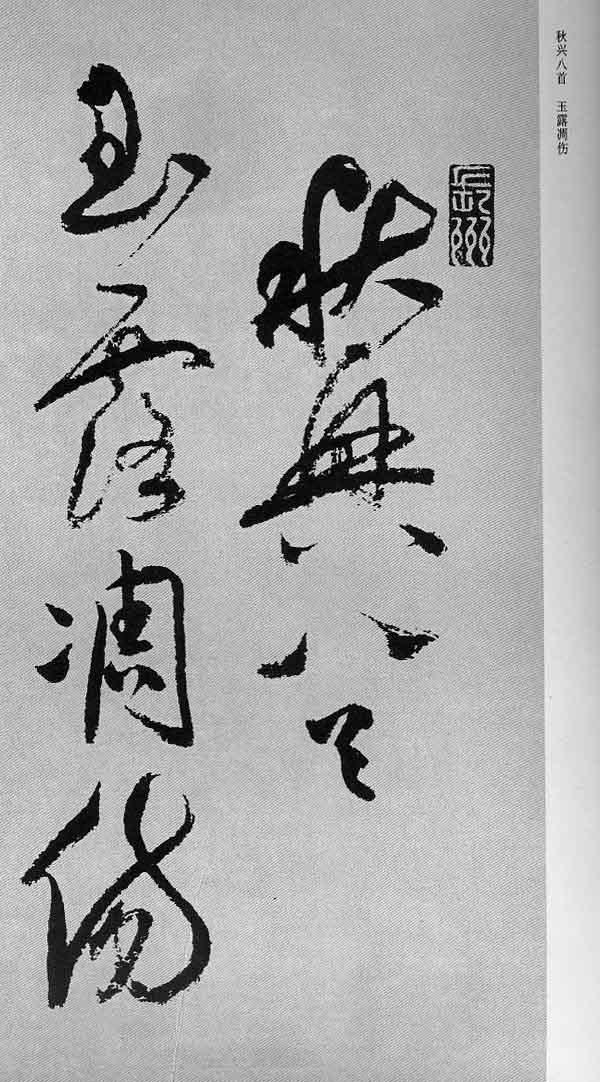 秋兴八首　玉露凋伤
秋興八首
玉露凋傷